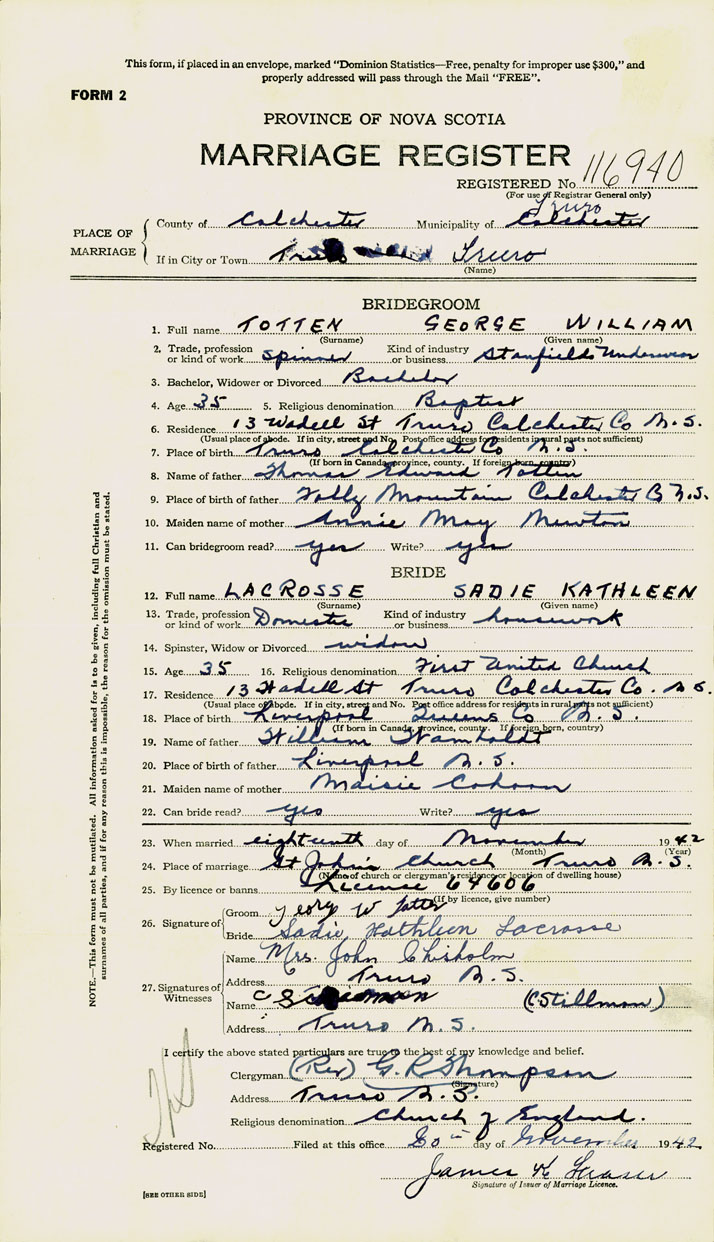 This form, if placed in an envelope, marked “Dominion Statistics—Free, penalty for improper use $300,” and
properly addressed will pass through the Mail “FREE”.
FORM 2
PROVINCE OF NOVA SCOTIA
MARRIAGE REGISTER
REGISTERED No. 116940
(For use of Registrar General only)
Truro
PLACE OF MARRIAGE
County of Colchester Municipality of Colchester
If in City or Town Truro Truro
(Name)
BRIDEGROOM
1. Full name TOTTEN GEORGE WILLIAM
(Surname) (Given name)
2. Trade, profession or kind of work Spinner Kind of industry or business Stanfields Underwear
3. Bachelor, Widower or Divorced Bachelor
4. Age 35 5. Religious denomination Baptist
6. Residence 13 Wadell St Truro Colchester Co N.S.
(Usual place of abode. If in city, street and No. Post office address for residents in rural parts not sufficient)
7. Place of birth Truro Colchester Co N.S.
(If born in Canada, province, county. If foreign born, country)
8. Name of father Thomas Edward Totten
9. Place of birth of father Folly Mountain Colchester Co N.S.
10. Maiden name of mother Annie May Newton
11. Can bridegroom read? yes Write? yes
BRIDE
12. Full name LACROSSE SADIE KATHLEEN
(Surname) (Given name)
13. Trade, profession or kind of work Domestic Kind of industry or business housework
14. Spinster, Widow or Divorced widow
15. Age 35 16. Religious denomination First United Church
17. Residence 13 Wadell St Truro Colchester Co. N.S.
(Usual place of abode. If in city, street and No. Post office address for residents in rural parts not sufficient)
18. Place of birth Liverpool Queens Co N.S.
(If born in Canada, province, county. If foreign born, country)
19. Name of father William Wamboldt
20. Place of birth of father Liverpool N.S.
21. Maiden name of mother Maisie Cohoon
22. Can bride read? yes Write? yes
23. When married eighteenth day of November 1942
(Month) (Year)
24. Place of marriage St John's Church Truro N.S.
(Name of church or clergyman's residence or location of dwelling house)
25. By licence or banns License 64606
(If by licence, give number)
26. Signature of
Groom George W Totten
Bride Sadie Kathleen Lacrosse
27. Signatures of Witnesses
Name Mrs. John Chisholm
Address Truro N.S.
Name C (Stillman)
Address Truro N.S.
I certify the above stated particulars are true to the best of my knowledge and belief.
Clergyman (Rev) G. R. Thompson
(Signature)
Address Truro N.S.
Religious denomination Church of England.
Registered No. Filed at this office 20th day of November 1942
James K Fraser
Signature of Issuer of Marriage Licence.
[SEE OTHER SIDE]
NOTE.—This form must not be mutilated. All information asked for is to be given, including full Christian and
surnames of all parties, and if for any reason this is impossible, the reason for the omission must be stated.